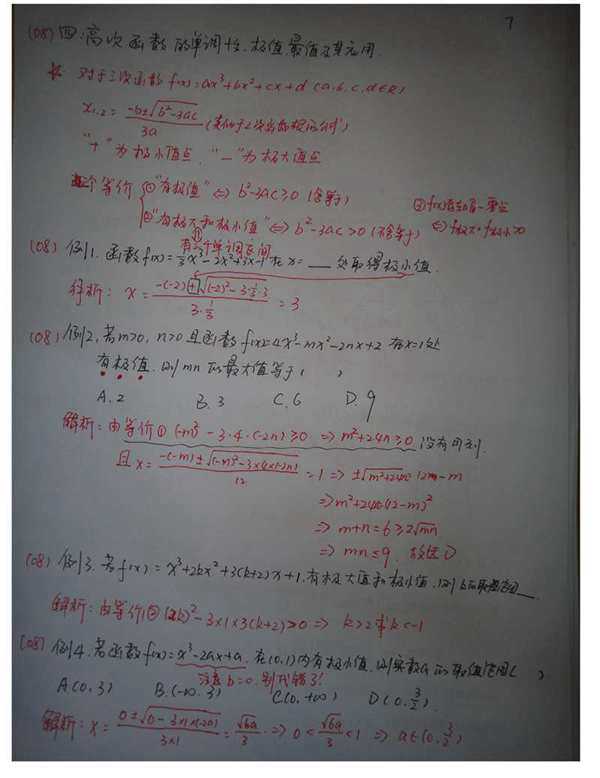 7
(08) 四.高次函数的单调性.极值.最值及其应用
☆ 对于三次函数 f(x)=ax³+bx²+cx+d (a.b.c.d∈R)
x₁,₂ = (-b±√(b²-3ac))/3a
"+"为极小值点. "-"为极大值点
等价 ①"有极值" ⇔ b²-3ac≥0 (含等于)
②"有极大和极小值" ⇔ b²-3ac>0 (不含等于)
有三个单调区间
(08) 例1. 函数f(x)=1/3x³-2x²+3x-1在x=___处取得极小值.
解析: x = (-(-2)+√((-2)²-3·1/3·3))/(3·1/3) = 3
(08) 例2, 若m>0, n>0且函数f(x)=4x³-mx²-2nx+2 在x=1处
有极值. 则mn的最大值等于( )
A.2 B.3 C.6 D.9
解析: 由等价① (-m)²-3·4·(-2n)≥0 ⇒ m²+24n≥0 没有用到.
且 x = (-(-m)±√((-m)²-3×4×(-2n)))/12 = 1 ⇒ ±√(m²+24n)=12-m
⇒m²+24n=(12-m)²
⇒ m+n=6≥2√mn
⇒ mn≤9. 故选D
(08) 例3. 若f(x)=x³+2kx²+3(k+2)x+1.有极大值和极小值.则k的取值范围___.
解析: 由等价② (2k)²-3×1×3(k+2)>0 ⇒ k>2或k<-1
(08) 例4. 若函数f(x)=x³-2ax+a. 在(0,1)内有极小值.则实数a的取值范围( )
注意 b=0.别代错了!
A(0.3) B.(-∞.3) C(0.+∞) D(0.3/2).
解析: x = (0±√(0-3×1×(-2a)))/(3×1) = √6a/3 ⇒ 0<√6a/3<1 ⇒ a∈(0.3/2)